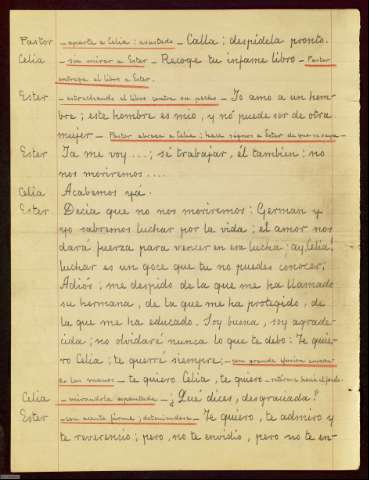 Pastor – aparte a Celia: asustado – Calla: despídela pronto.
Celia – sin mirar a Ester – Recoge tu infame libro – Pastor
entrega el libro a Ester.
Ester – estrechando el libro contra su pecho – Yo amo a un hom-
bre; este hombre es mio, y nó puede ser de otra
mujer – Pastor abraza a Celia: hace signos a Ester de que se vaya –
Ester Ya me voy ....; sé trabajar, él tambien: no
nos moriremos ....
Celia Acabemos ya.
Ester Decía que no nos moriremos: German y
yo sabremos luchar por la vida; el amor nos
dará fuerza para vencer en esa lucha; ay, Celia!
luchar es un goce que tu no puedes conocer.
Adiós; me despido de la que me ha llamado
su hermana, de la que me ha protegido, de
la que me ha educado. Soy buena, soy agrade-
cida; no olvidaré nunca lo que te debo: Te quie-
ro Celia; te querré siempre; – con grande efusion
las manos – te quiero Celia, te quiero –
Celia – mirandola espantada – ¿Qué dices, desgraciada?
Ester – con acento firme, deteniendose – Te quiero, te admiro y
te reverencio; pero, no te envidio, pero no te en-